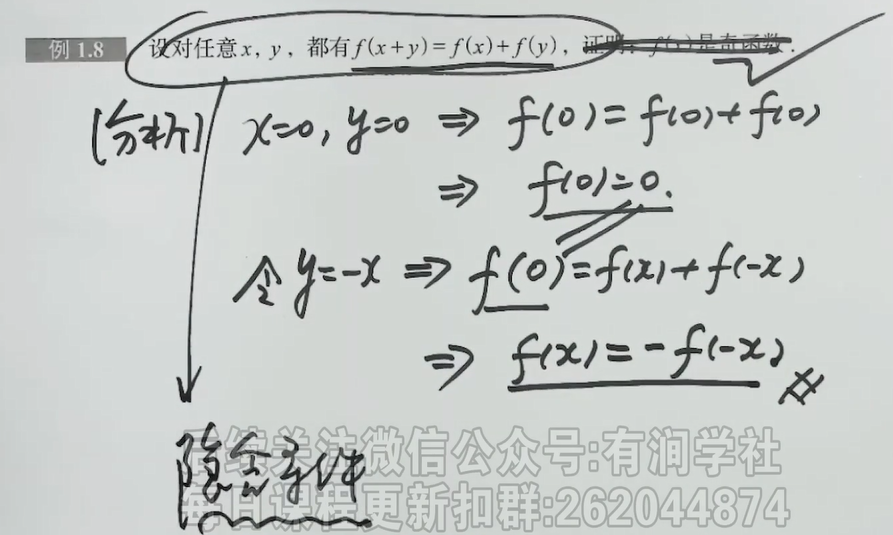 例 1.8 设对任意x, y, 都有f(x+y)=f(x)+f(y), 证明: f(x)是奇函数.
[分析] x=0, y=0 ⇒ f(0)=f(0)+f(0)
⇒ f(0)=0.
令 y=-x ⇒ f(0)=f(x)+f(-x)
⇒ f(x)=-f(-x)
隐含条件
关注微信公众号:有润学社
每日课程更新扣群:262044874